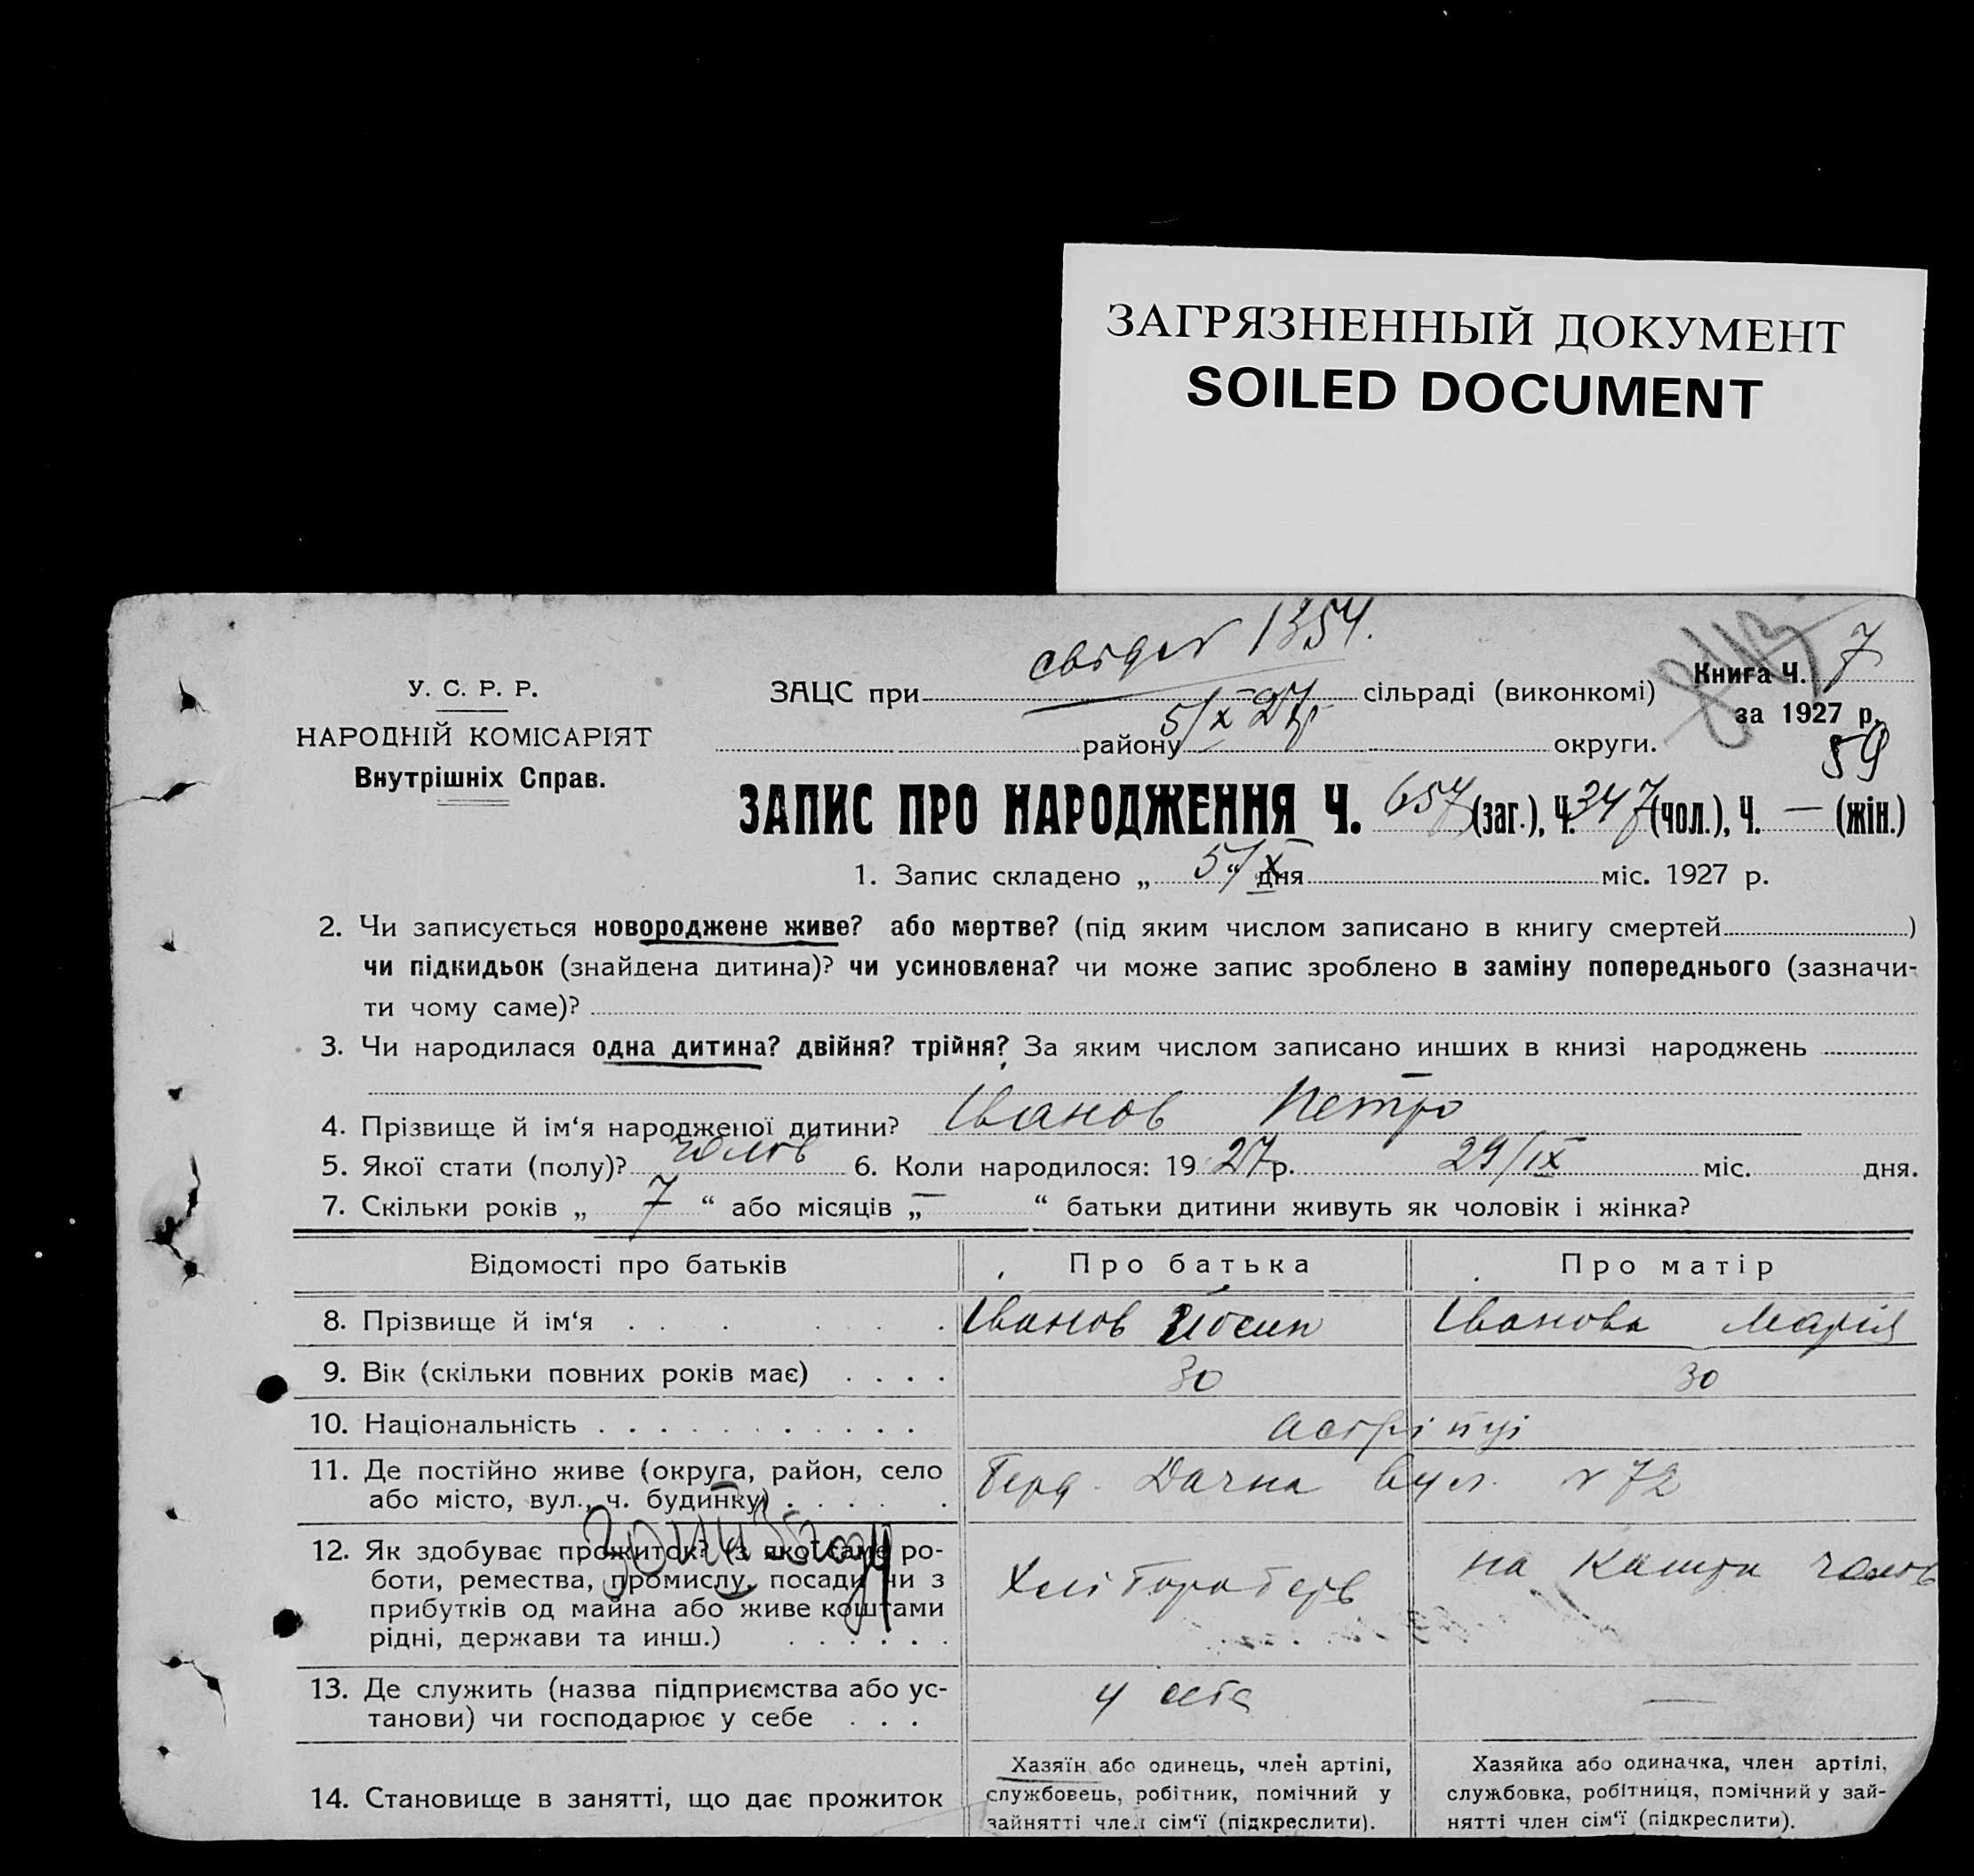 ЗАГРЯЗНЕННЫЙ ДОКУМЕНТ
SOILED DOCUMENT
1354.
У. С. Р. Р.
НАРОДНІЙ КОМІСАРІЯТ
Внутрішніх Справ.
ЗАЦС при сільраді (виконкомі)
5/X–27р
району округи.
Книга Ч. 7
за 1927 р.
59
ЗАПИС ПРО НАРОДЖЕННЯ Ч. 657 (заг.), Ч. 347 (чол.), Ч. — (жін.)
1. Запис складено „ 5/X “ дня міс. 1927 р.
2. Чи записується новороджене живе? або мертве? (під яким числом записано в книгу смертей )
чи підкидьок (знайдена дитина)? чи усиновлена? чи може запис зроблено в заміну попереднього (зазначи-
ти чому саме)?
3. Чи народилася одна дитина? двійня? трійня? За яким числом записано инших в книзі народжень
—
4. Прізвище й ім‘я народженої дитини? Іванов Петро
5. Якої стати (полу)? чолов 6. Коли народилося: 19 27 р. 29/IX міс. дня.
7. Скільки років „ 7 “ або місяців „ — “ батьки дитини живуть як чоловік і жінка?
Відомості про батьків Про батька Про матір
8. Прізвище й ім‘я Іванов Йосип Іванова Марія
9. Вік (скільки повних років має) 30 30
10. Національність
11. Де постійно живе (округа, район, село
або місто, вул., ч. будинку) Дачна вул. № 72
12. Як здобуває прожиток? (з якої саме ро-
боти, ремества, промислу, посади чи з
прибутків од майна або живе коштами
рідні, держави та инш.) на кошти чолов
13. Де служить (назва підприємства або ус-
танови) чи господарює у себе у себе —
14. Становище в занятті, що дає прожиток
Хазяїн або одинець, член артілі,
службовець, робітник, помічний у
зайнятті член сім‘ї (підкреслити).
Хазяйка або одиначка, член артілі,
службовка, робітниця, помічний у зай-
нятті член сім‘ї (підкреслити).